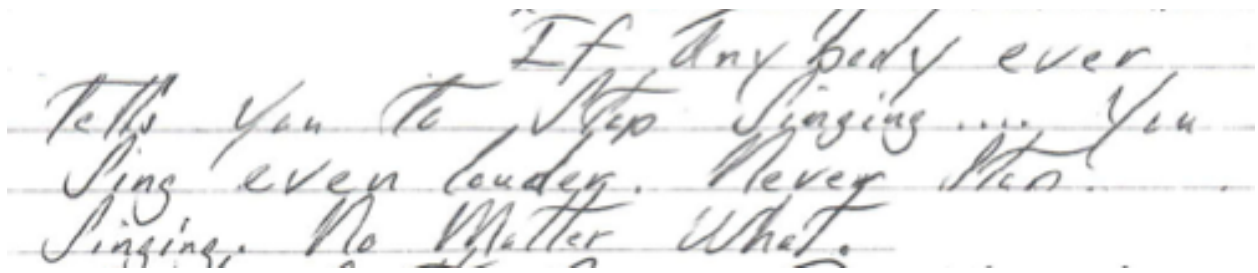 If Any body ever
Tells you To Stop Singing.... You
Sing even louder. Never Stop.
Singing. No Matter What.